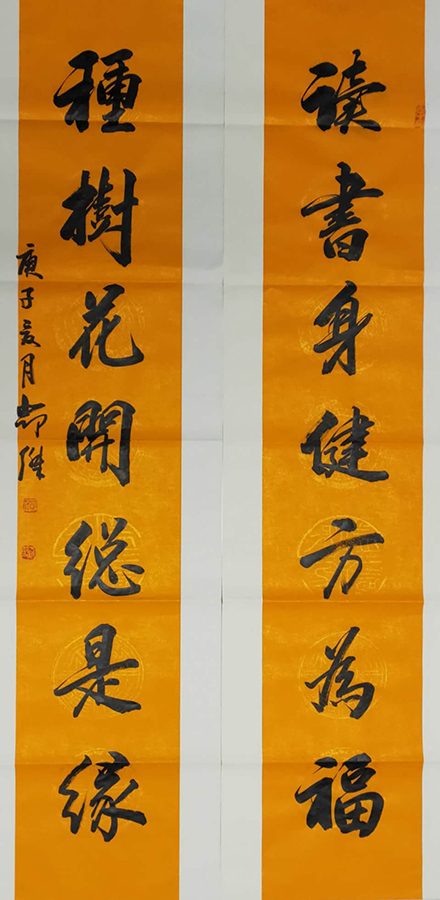 读書身健方為福
種樹花開総是缘
庚子亥月